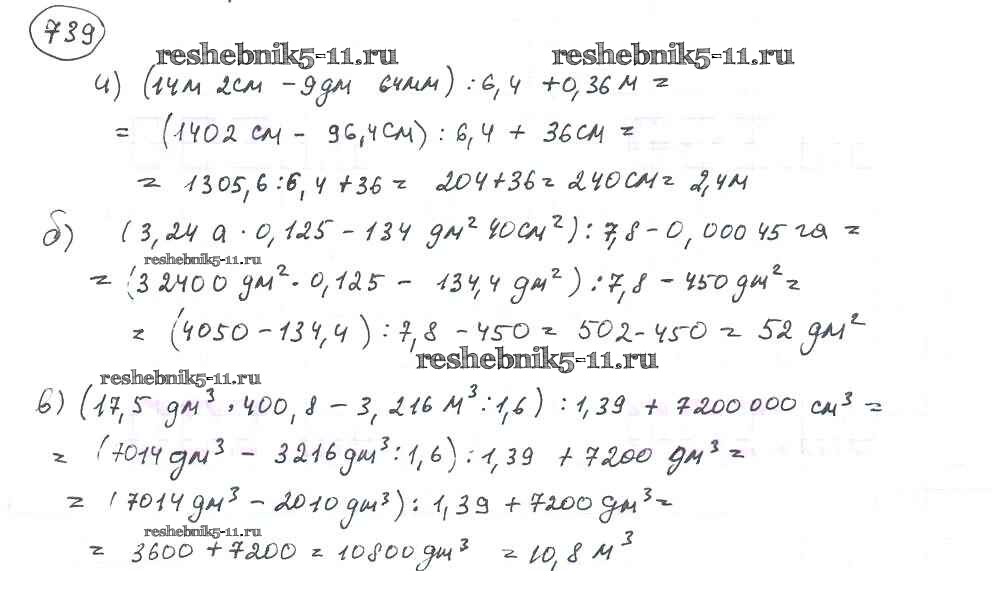 739
reshebnik5-11.ru reshebnik5-11.ru
а) (14м 2см - 9дм 64мм) : 6,4 + 0,36м =
= (1402 см - 96,4см) : 6,4 + 36см =
= 1305,6 : 6,4 + 36 = 204 + 36 = 240см = 2,4м
б) (3,24 а · 0,125 - 134 дм² 40см²) : 7,8 - 0,00045 га =
reshebnik5-11.ru
= (32400 дм² · 0,125 - 134,4 дм²) : 7,8 - 450дм² =
= (4050 - 134,4) : 7,8 - 450 = 502 - 450 = 52 дм²
reshebnik5-11.ru
reshebnik5-11.ru
в) (17,5 дм³ · 400,8 - 3,216 м³ : 1,6) : 1,39 + 7200000 см³ =
= (7014дм³ - 3216дм³ : 1,6) : 1,39 + 7200 дм³ =
= (7014дм³ - 2010дм³) : 1,39 + 7200дм³ =
reshebnik5-11.ru
= 3600 + 7200 = 10800дм³ = 10,8 м³